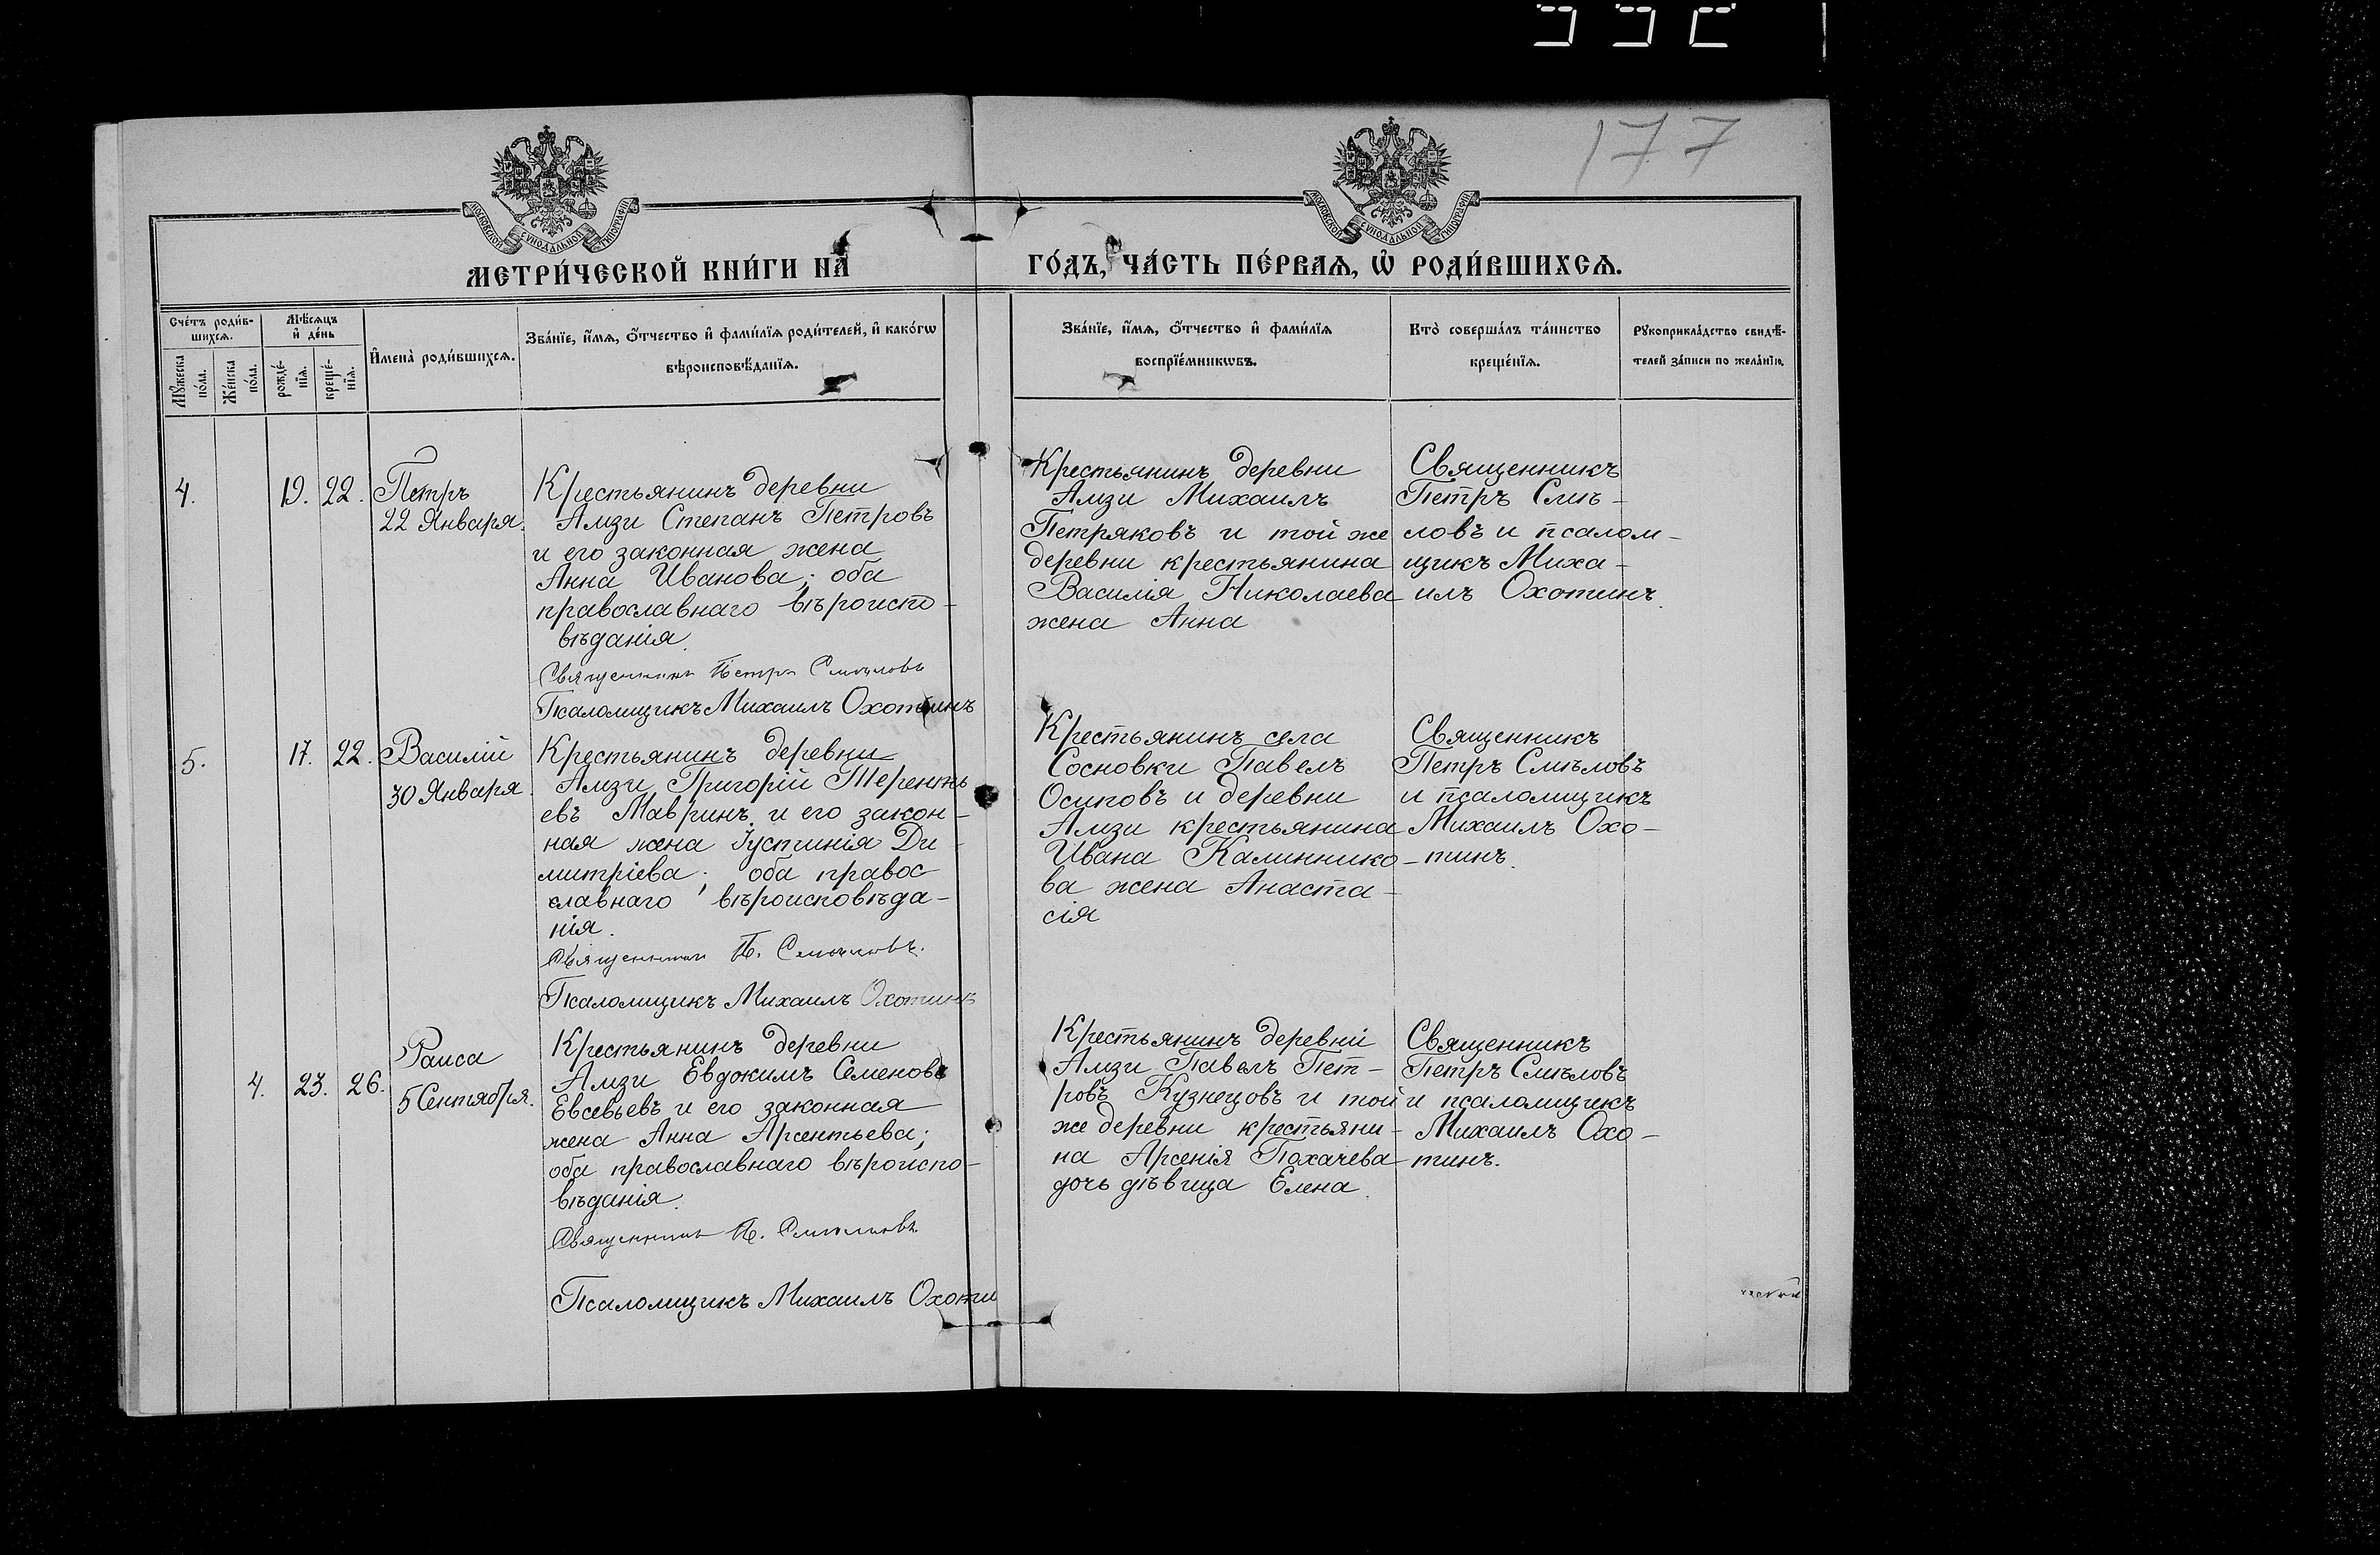 177
МОСКОВСКОЙ СѴНОДАЛЬНОЙ ТИПОГРАФІИ
МОСКОВСКОЙ СѴНОДАЛЬНОЙ ТИПОГРАФІИ
МЕТРИ́ЧЕСКОЙ КНИ́ГИ НА̀
ГО́ДЪ, ЧА́СТЬ ПЕ́РВАѦ, Ѡ҆ РОДИ́ВШИХСѦ.
Сче́тъ роди́в-
шихсѧ.
Мꙋ́жеска
по́ла.
Же́нска
по́ла.
Мѣ́сѧцъ
и҆ де́нь
рожде́-
нїѧ.
креще́-
нїѧ.
И҆мена̀ роди́вшихсѧ.
Зва́нїе, и҆́мѧ, ѻ҆́тчество и҆ фами́лїѧ роди́телей, и҆ како́гѡ
вѣроисповѣ́данїѧ.
Зва́нїе, и҆́мѧ, ѻ҆́тчество и҆ фами́лїѧ
воспрїе́мникѡвъ.
Кто̀ соверша́лъ та́инство
креще́нїѧ.
Рꙋкоприкла́дство свидѣ́-
телей за́писи по жела́нїю.
4.
19.
22.
Петръ
22 Января.
Крестьянинъ деревни
Амзи Степанъ Петровъ
и его законная жена
Анна Иванова; оба
православнаго вѣроиспо-
вѣданія.
Священникъ Петръ Смѣловъ
Псаломщикъ Михаилъ Охотинъ
Крестьянинъ деревни
Амзи Михаилъ
Петряковъ и той же
деревни крестьянина
Василія Николаева
жена Анна
Священникъ
Петръ Смѣ-
ловъ и псалом-
щикъ Миха-
илъ Охотинъ.
5.
17.
22.
Василій
30 Января.
Крестьянинъ деревни
Амзи Григорій Терентъ
евъ Мавринъ и его закон-
ная жена Іустинія Ди-
митріева; оба правос
славнаго вѣроисповѣда-
нія.
Священникъ П. Смѣловъ.
Псаломщикъ Михаилъ Охотинъ
Крестьянинъ села
Сосновки Павелъ
Осиповъ и деревни
Амзи крестьянина
Ивана Калиннико-
ва жена Анаста-
сія
Священникъ
Петръ Смѣловъ
и псаломщикъ
Михаилъ Охо-
тинъ.
4.
23.
26.
Раиса
5 Сентября.
Крестьянинъ деревни
Амзи Евдокимъ Семеновъ
Евсевьевъ и его законная
жена Анна Арсентьева;
оба православнаго вѣроиспо-
вѣданія.
Священникъ П. Смѣловъ
Псаломщикъ Михаилъ Охоти
Крестьянинъ деревни
Амзи Павелъ Пет-
ровъ Кузнецовъ и той
же деревни крестьяни-
на Арсенія Похачева
дочь дѣвица Елена.
Священникъ
Петръ Смѣловъ
и псаломщикъ
Михаилъ Охо-
тинъ.